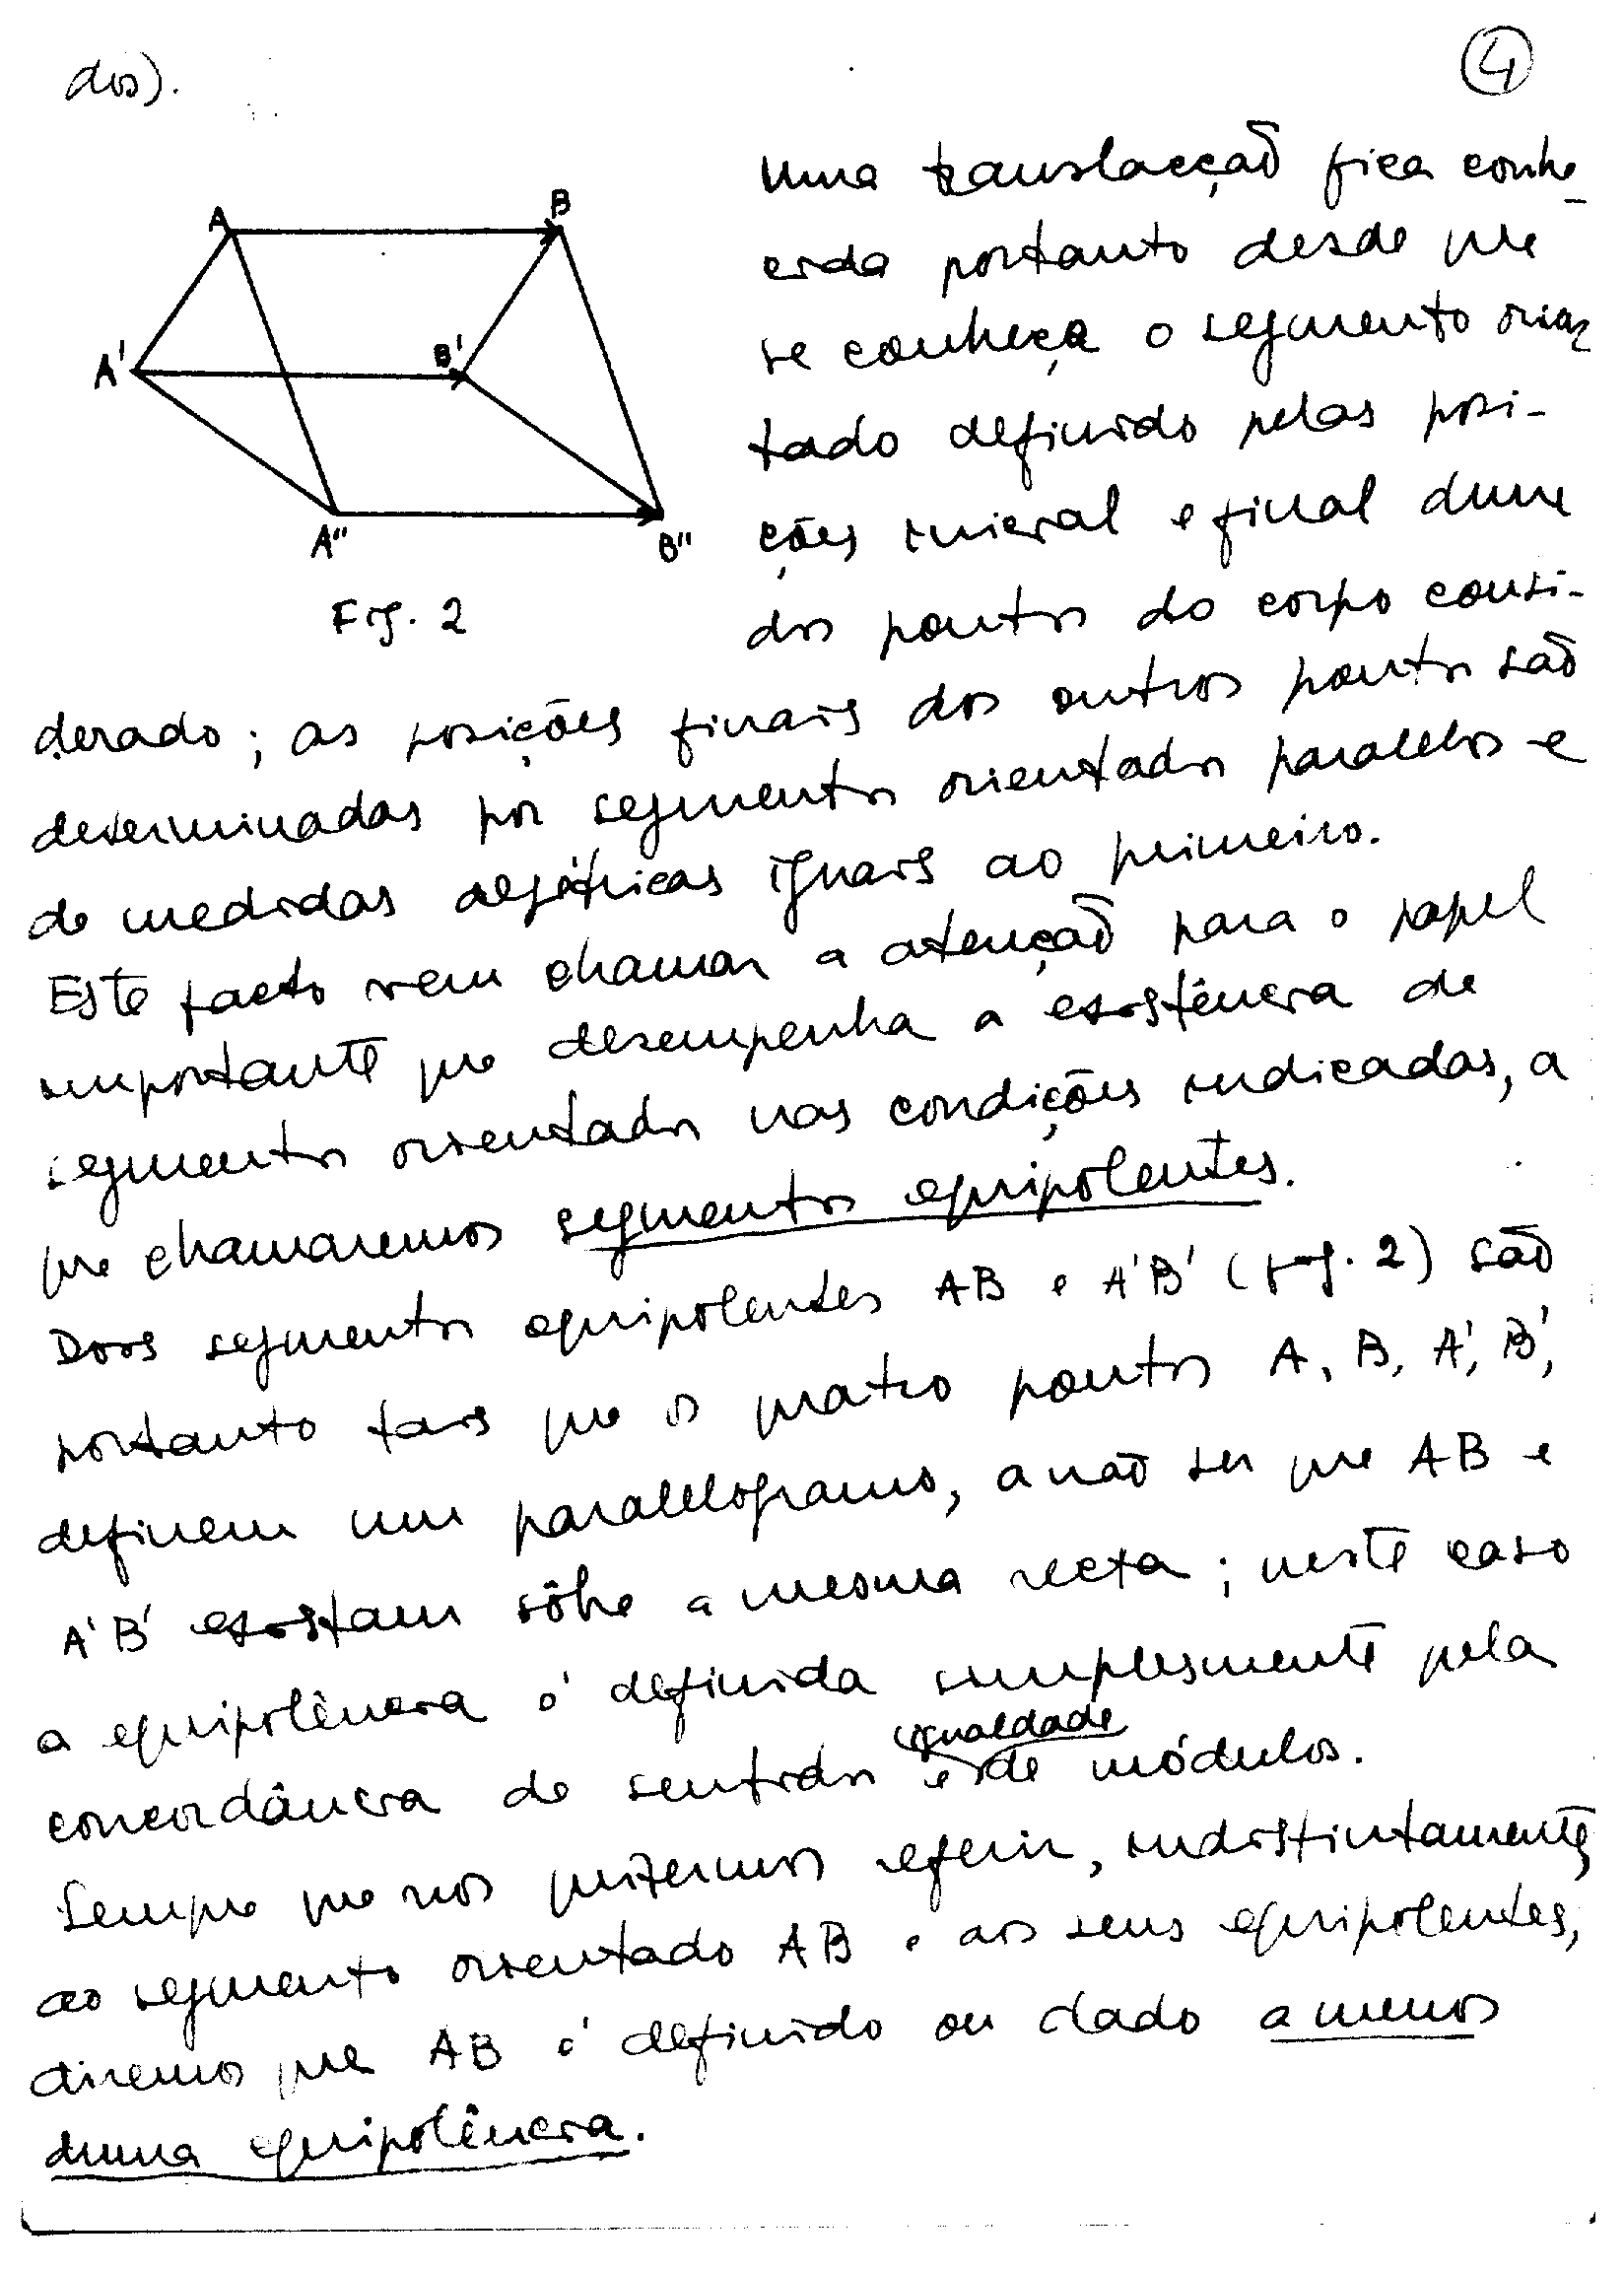 dos).
4
Uma translacção fica conhe-
cida portanto desde que
se conheça o segmento orien
tado definido pelas posi-
ções inicial e final dum
dos pontos do corpo consi-
A
B
A'
B'
A"
B"
Fig. 2
derado; as posições finais dos outros pontos são
determinadas por segmentos orientados paralelos e
de medidas algébricas iguais ao primeiro.
Este facto vem chamar a atenção para o papel
importante que desempenha a existência de
segmentos orientados nas condições indicadas, a
que chamaremos segmentos equipolentes.
Dois segmentos equipolentes AB e A'B' (fig. 2) são
portanto tais que os quatro pontos A, B, A', B',
definem um paralelogramo, a não ser que AB e
A'B' existam sôbre a mesma recta; neste caso
a equipolência é definida simplesmente pela
igualdade
concordância de sentidos e de módulos.
Sempre que nos quizermos referir, indistintamente,
ao segmento orientado AB e aos seus equipolentes,
diremos que AB é definido ou dado a menos
duma equipolência.